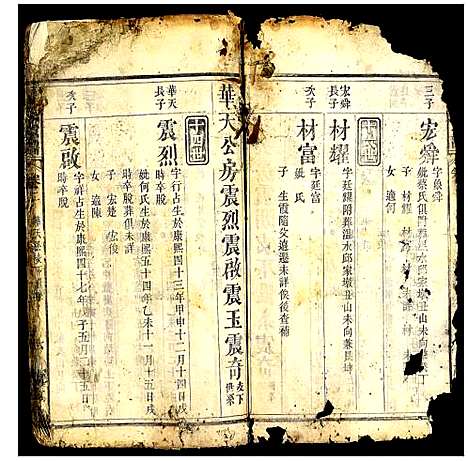 三子
宏舜
字泉舜
妣蔡氏俱附葬溫水邱家墩丑山未向兼艮丁
子 材耀 材富
女 適何
宏舜長子
材耀
字廷耀附葬溫水邱家墩丑山未向兼艮坤
次子
材富
字廷富
妣氏
子 生霞隨父遠遷未詳俟後查補
華天公房震烈震啟震玉震奇
左下
世系
十四世
華天長子
震烈
字行占生於康熙四十三年甲申十二月十四日戌時卒歿
妣何氏生於康熙五十四年乙未十一月十五日戌時卒歿葬俱未詳
子 宏楚 宏俊
女 適陳
次子
震啟
字祥占生於康熙四十七年戊子五月
時卒歿